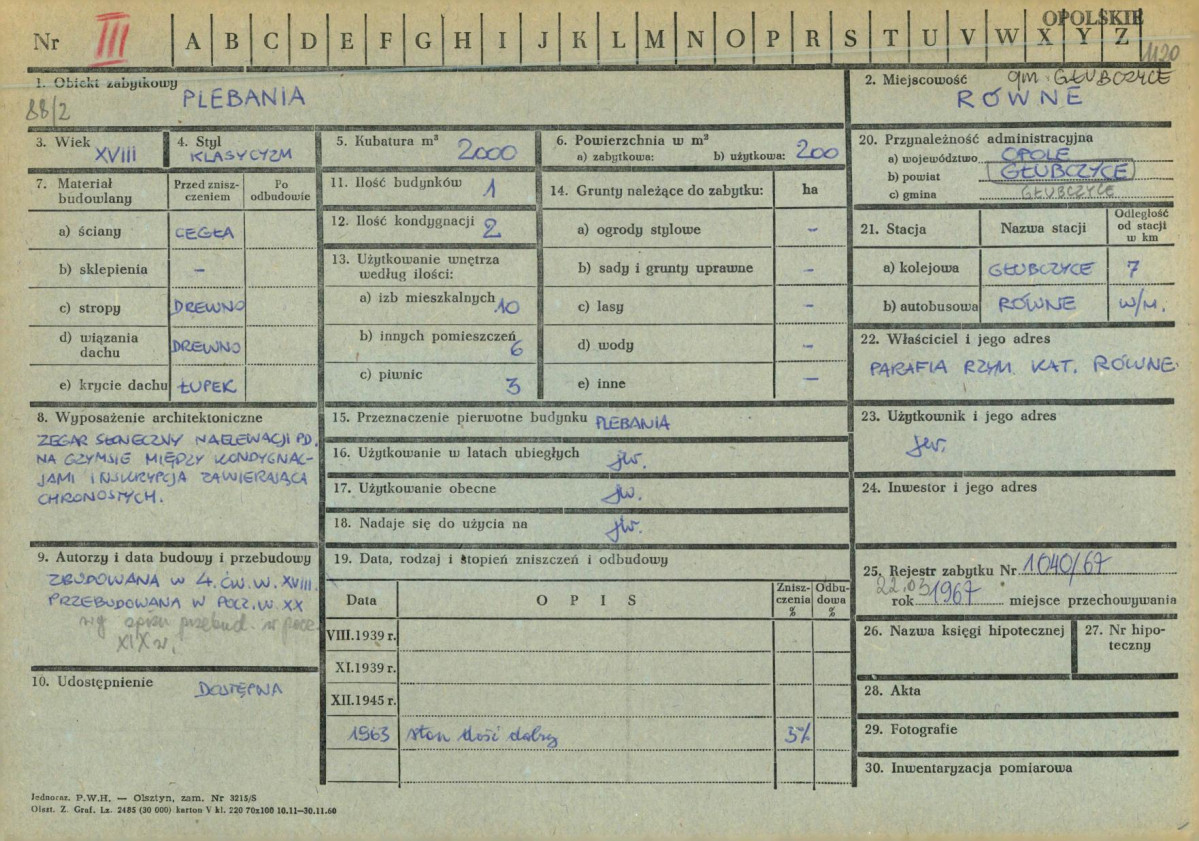 OPOLSKIE
Nr III A B C D E F G H I J K L M N O P R S T U V W X Y Z
1120
1. Obiekt zabytkowy
PLEBANIA
88/2
2. Miejscowość gm. GŁUBCZYCE
RÓWNE
3. Wiek
XVIII
4. Styl
KLASYCYZM
5. Kubatura m³ 2000
6. Powierzchnia w m²
a) zabytkowa: b) użytkowa: 200
7. Materiał budowlany
Przed zniszczeniem
Po odbudowie
a) ściany CEGŁA
b) sklepienia –
c) stropy DREWNO
d) wiązania dachu DREWNO
e) krycie dachu ŁUPEK
8. Wyposażenie architektoniczne
ZEGAR SŁONECZNY NA ELEWACJI PD.
NA GZYMSIE MIĘDZY KONDYGNAC-
JAMI INSKRYPCJA ZAWIERAJĄCA
CHRONOSTYCH.
9. Autorzy i data budowy i przebudowy
ZBUDOWANA W 4. ĆW. W. XVIII.
PRZEBUDOWANA W POCZ. W. XX
wg opisu przebud. w pocz.
XIX w.
10. Udostępnienie DOSTĘPNA
11. Ilość budynków 1
12. Ilość kondygnacji 2
13. Użytkowanie wnętrza
według ilości:
a) izb mieszkalnych 10
b) innych pomieszczeń 6
c) piwnic 3
14. Grunty należące do zabytku: ha
a) ogrody stylowe –
b) sady i grunty uprawne –
c) lasy –
d) wody –
e) inne –
15. Przeznaczenie pierwotne budynku PLEBANIA
16. Użytkowanie w latach ubiegłych jw.
17. Użytkowanie obecne jw.
18. Nadaje się do użycia na jw.
19. Data, rodzaj i stopień zniszczeń i odbudowy
Data OPIS Zniszczenia % Odbudowa %
VIII.1939 r.
XI.1939 r.
XII.1945 r.
1963 stan dość dobry 3%
20. Przynależność administracyjna
a) województwo OPOLE
b) powiat GŁUBCZYCE
c) gmina GŁUBCZYCE
21. Stacja Nazwa stacji Odległość od stacji w km
a) kolejowa GŁUBCZYCE 7
b) autobusowa RÓWNE W/M.
22. Właściciel i jego adres
PARAFIA RZYM. KAT. RÓWNE.
23. Użytkownik i jego adres
jw.
24. Inwestor i jego adres
25. Rejestr zabytku Nr 1040/67
22.03 rok 1967 miejsce przechowywania
26. Nazwa księgi hipotecznej
27. Nr hipoteczny
28. Akta
29. Fotografie
30. Inwentaryzacja pomiarowa
Jednoraz. P.W.H. — Olsztyn, zam. Nr 3215/S
Olszt. Z. Graf. Lz. 2485 (30 000) karton V kl. 220 70x100 10.11—30.11.60